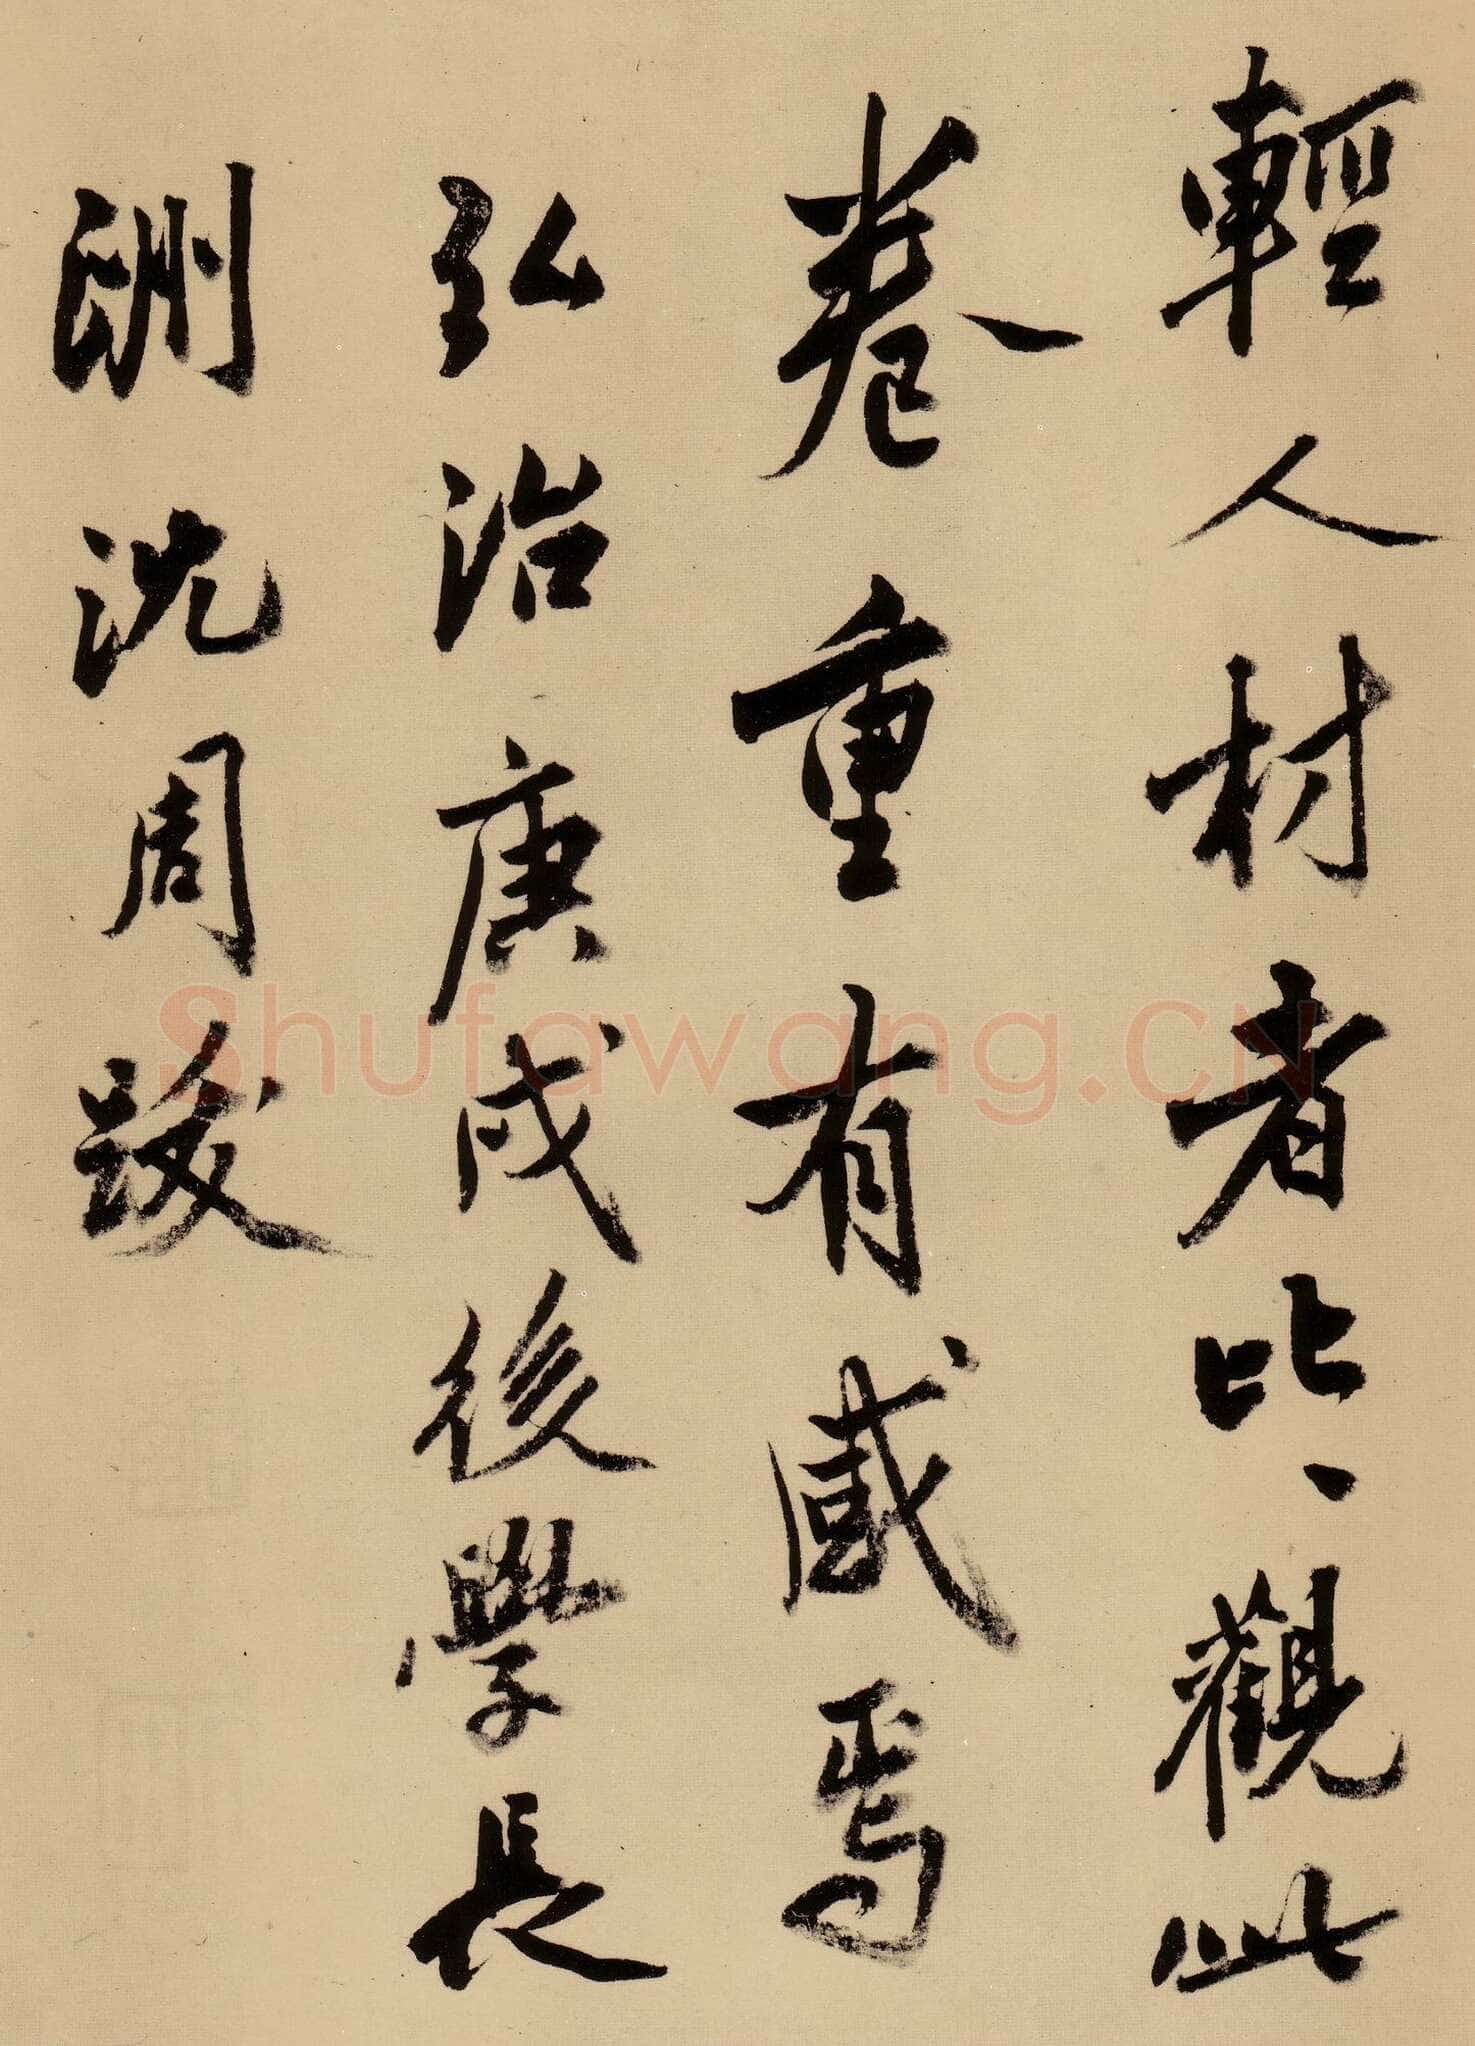 輕人材者比〻觀此
卷重有感焉
弘治庚戌後學長
洲沈周跋
Shufawang.CN